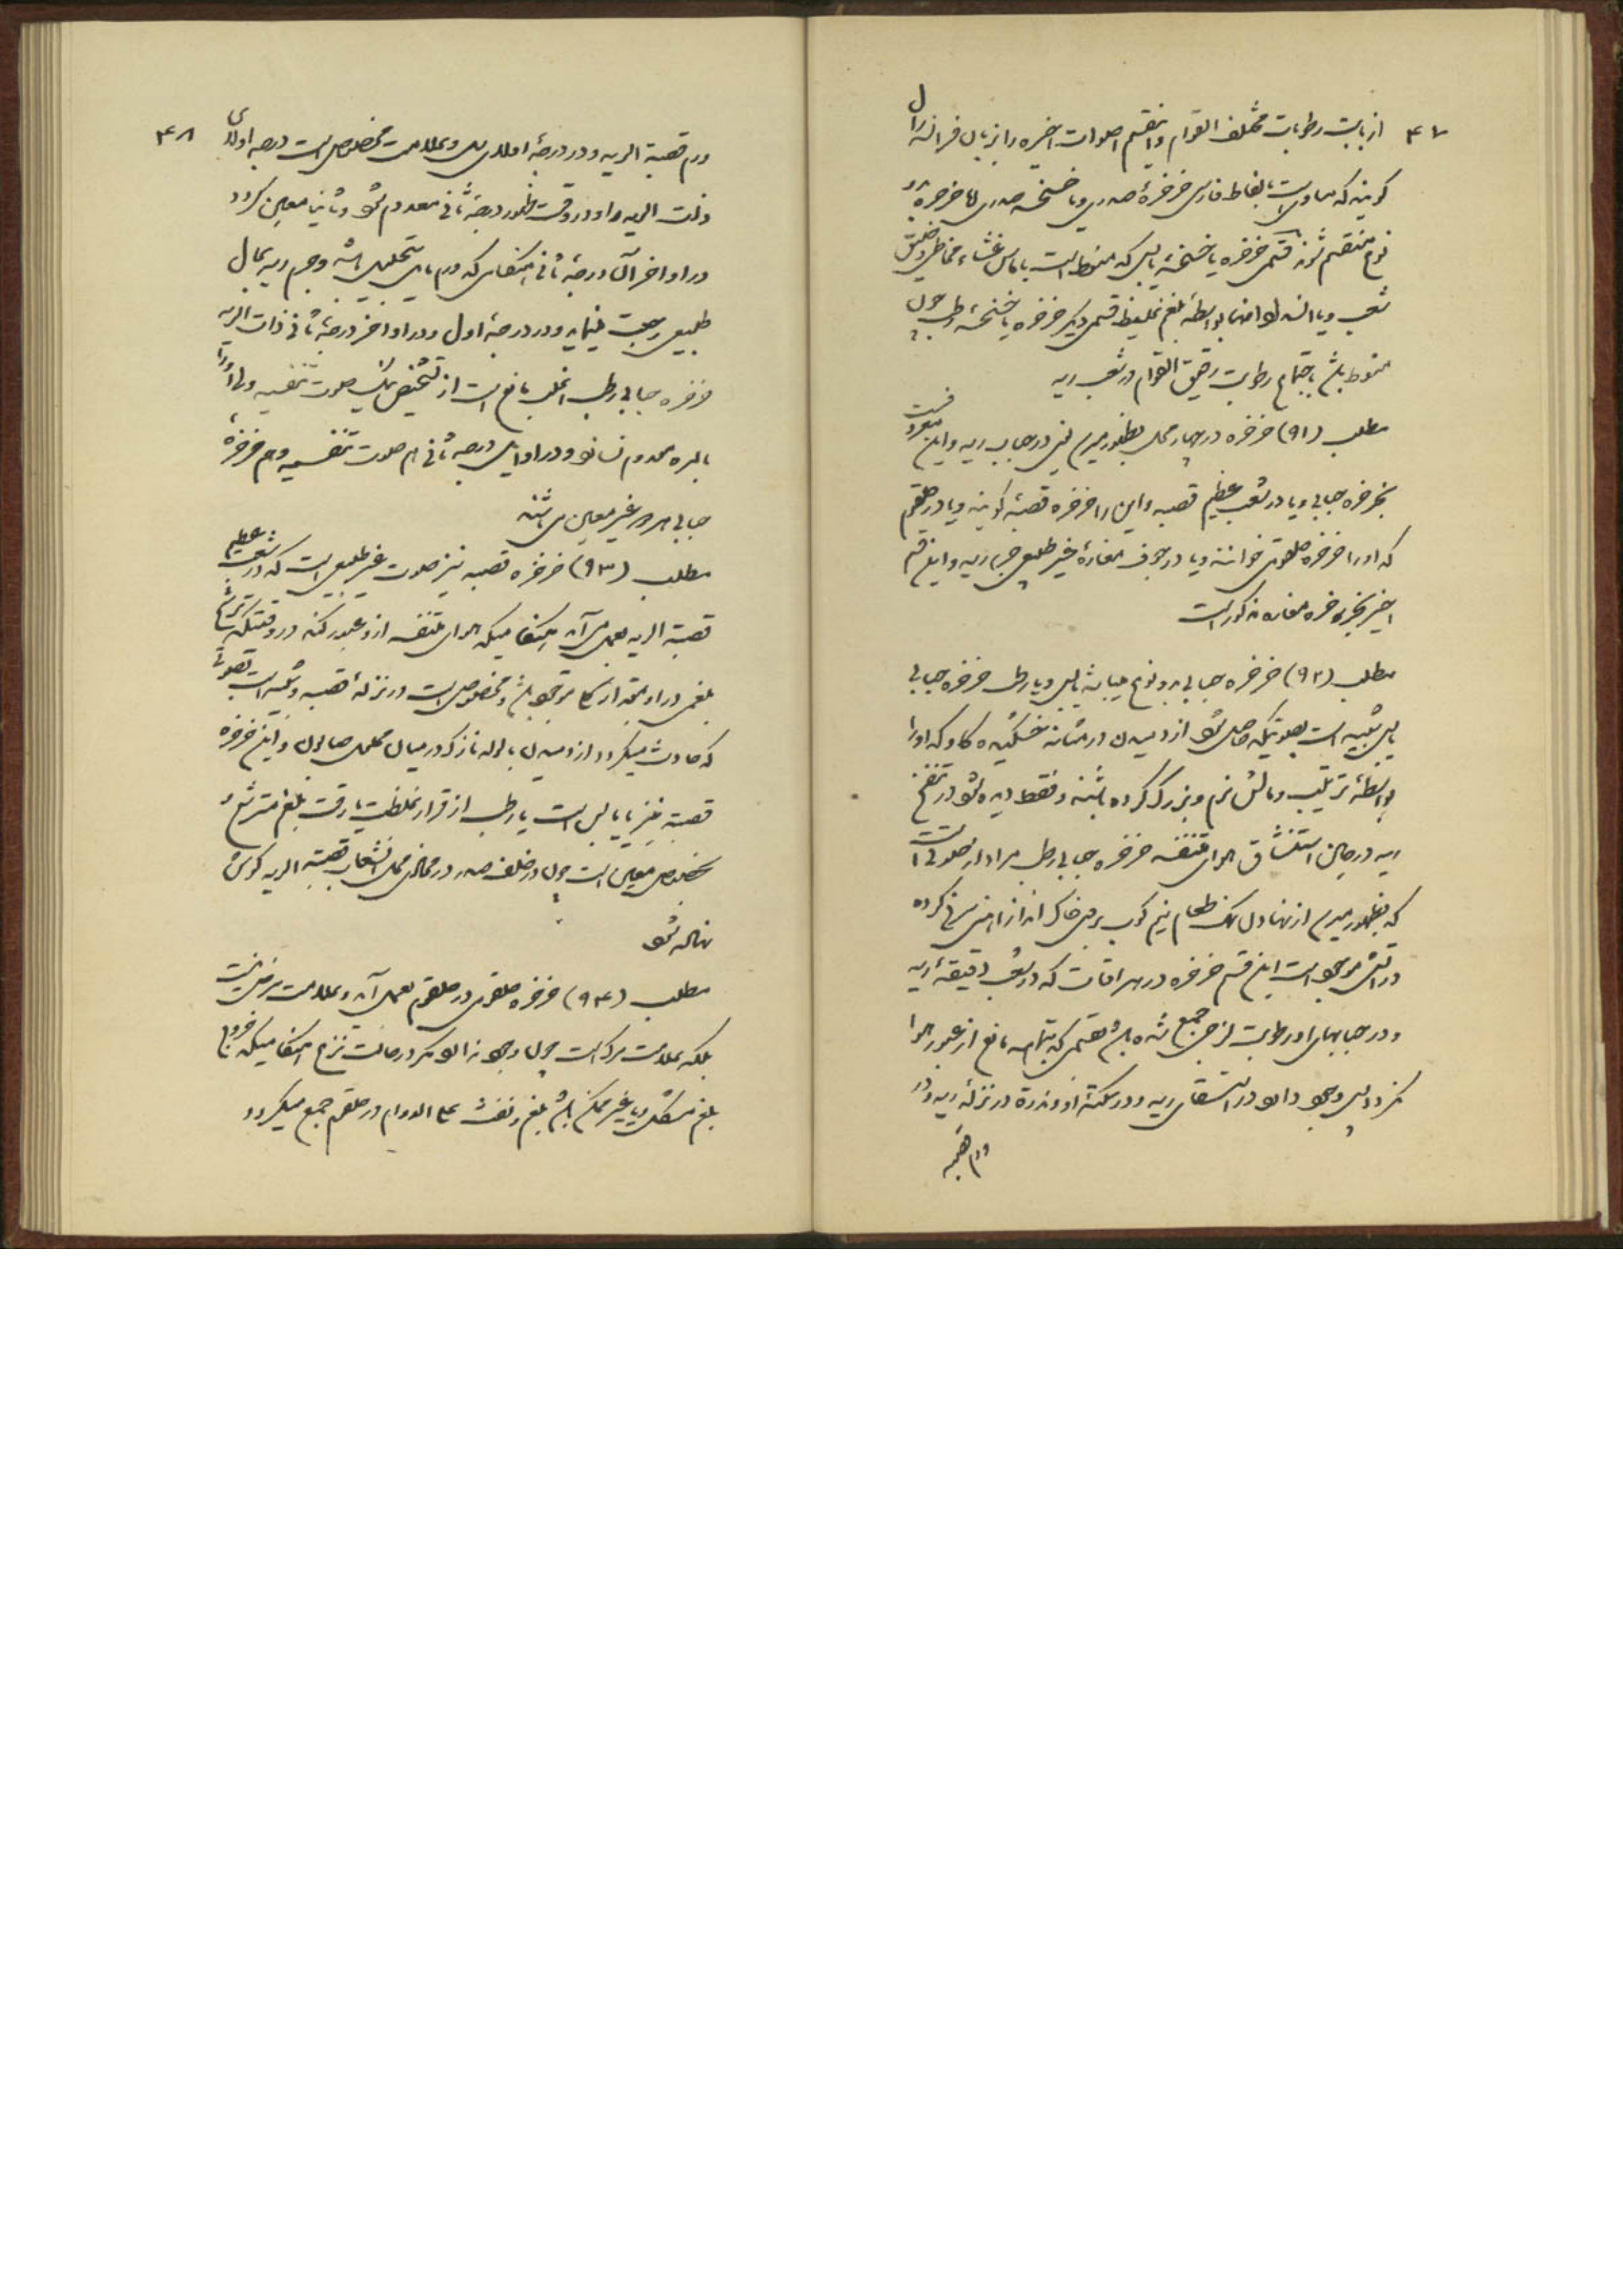 ۴۷
از بابت رطوبات مختلف القوام و این قسم اصوات اخیره را بزبان فرانسه رال
گویند که مساویست بالفاظ فارسی خرخرهٔ صدری و یا خسخسه صدری اما خرخره بدو
نوع منقسم شود قسمی خرخره یا خسخسهٔ یابس که منوط است باماس غشاء مخاطی و ضیق
شعب و یا انسداد آنها بواسطهٔ بلغم غلیظ و قسمی دیگر خرخره یا خسخسه رطب چون
منوط باشد باجتماع رطوبت رقیق القوام در شعب ریه
مطلب (۹۱) خرخره در چهار محل بظهور میرسد یعنی در حباب ریه و این معروفست
بخرخره حبابی و یا در شعب عظیم قصبه و این را خرخره قصبهٔ گویند و یا در حلقوم
که او را خرخره حلقومی خوانند و یا در جوف مغارهٔ غیر طبیعی جرم ریه و این قسم
اخیر بخرخره مغاره مذکور است
مطلب (۹۲) خرخره حبابی بدو نوع میباشد یابس و یا رطب خرخره حبابی
یابس شبیه است بصوتیکه حاصل شود از دمیدن در مثانه خشکیده گاو که او را
بواسطهٔ ترتیب و مالش نرم و بزرگ کرده باشند و فقط دیده شود در تنفخ
ریه در حین استنشاق هوای متنفسه خرخره حبابی رطب مراد از صوتی است
که بظهور میرسد از نهادن نمک طعام نیم کوب بر روی خاک انداز آهنی سرخ کرده
در آتش موجود است این قسم خرخره در هر اوقات که در شعب دقیقهٔ ریه
و در حبابهای او رطوبت لزجی جمع شده باشد بقسمی که بتمامه مانع از عبور هوا
نگردد پس وجود دارد در استسقای ریه و در سکتهٔ او و ندرة در نزلهٔ ریه و در
ورم قصبه
۴۸
ورم قصبة الریه و در درجهٔ اولای سل و علامت مخصوص است درجه اولای
ذات الریه را و در وقت ظهور درجهٔ ثانی معدوم شود و ثانیا معین گردد
در اواخر آن درجهٔ ثانی هنگامی که ورم بتحلیل باشد و جرم ریه بحال
طبیعی رجعت نماید و در درجهٔ اول و در اواخر درجهٔ ثانی ذات الریه
خرخره حبابی رطب اغلب مانع است از تشخیص دادن صوت تنفسیه ولی او را
بالمره معدوم نسازد و در اوایل درجهٔ ثانی هم صوت تنفسیه و هم خرخره
حبابی هر دو غیر معین میباشند
مطلب (۹۳) خرخره قصبه نیز صوت غیر طبیعی است که در شعب عظیم
قصبة الریه بعمل می آید هنگامیکه هوای متنفسه از او عبور کند در وقتیکه ترشح
بلغمی در او بمقدار زیاد موجود باشد و مخصوص است در نزلهٔ قصبه و شبیه است بصوتی
که حادث میگردد از دمیدن با لوله نازک در میان محلول صابون و این خرخره
قصبه نیز یا یابس است یا رطب از قرار غلظت یا رقت بلغم مترشح و
بخصوص معین است چون در خلف صدر در محاذی محل انشعاب قصبة الریه گوش
نهاده شود
مطلب (۹۴) خرخره حلقومی در حلقوم بعمل آید و علامت مرض نیست
بلکه علامت مرگ است چون وجود ندارد مگر در حالت نزع هنگامیکه خروج
بلغم مشکل و یا غیر ممکن باشد بلغم و نفث علی الدوام در حلقوم جمع میگردد